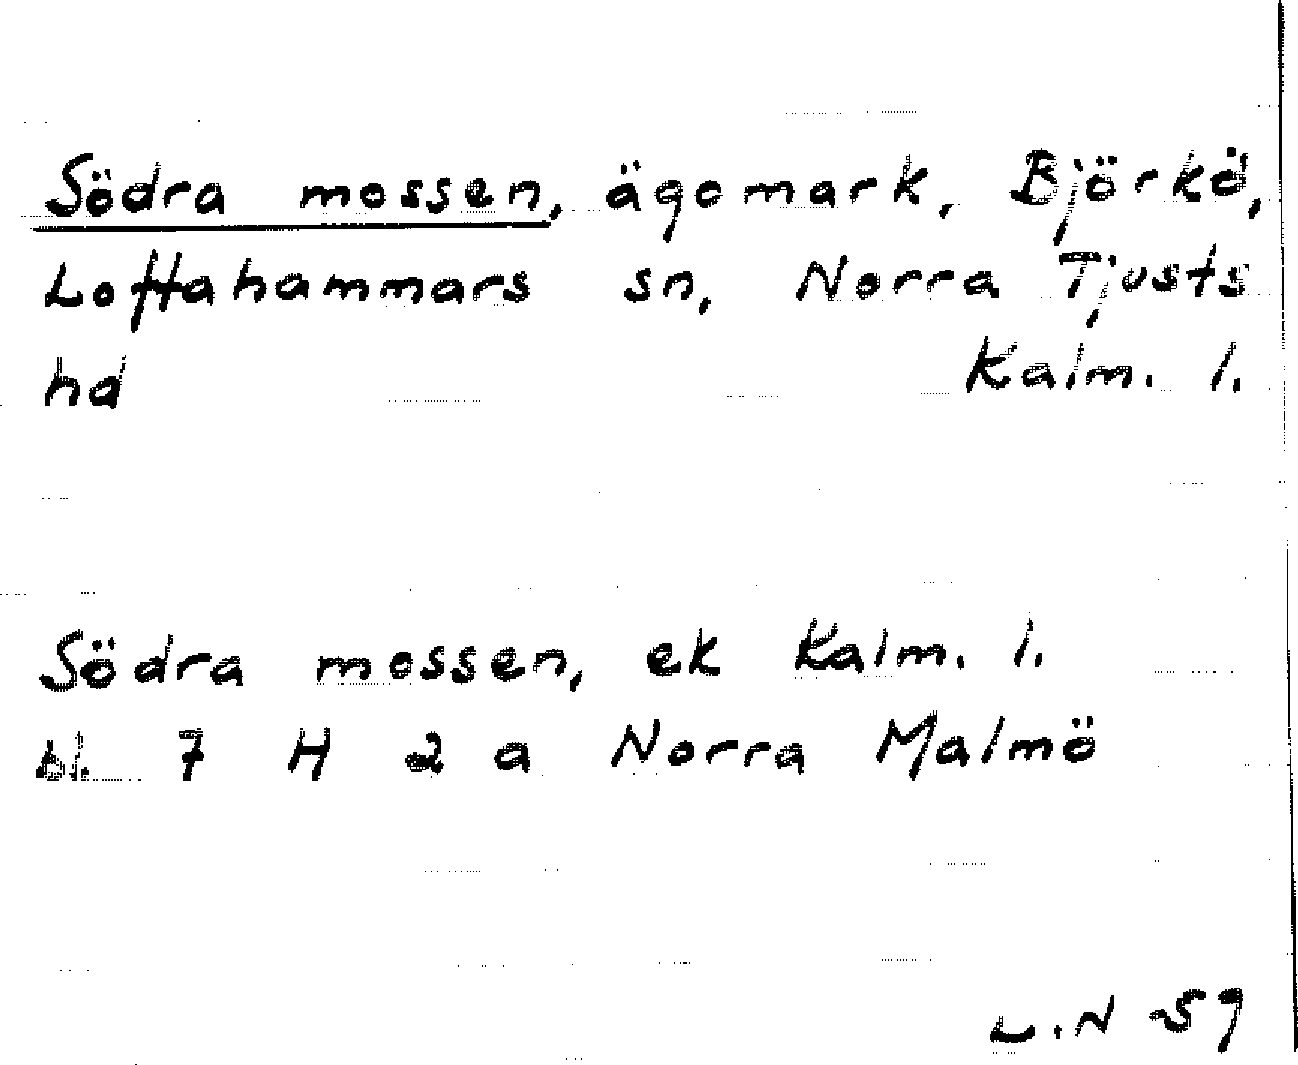 Södra mossen, ägomark, Björkö,
Loftahammars sn, Norra Tjusts
hd Kalm. l.
Södra mossen, ek Kalm. l.
bl. 7 H 2 a Norra Malmö
L.N 59